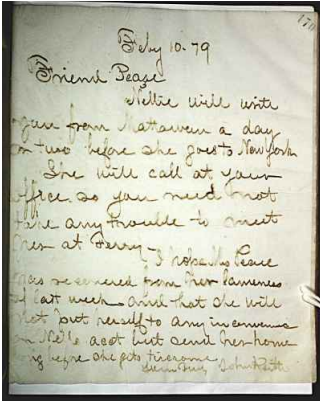 170
Feby 10.79
Friend Pease
Nettie will write
you from Mattawan a day
or two before she goes to New York
She will call at your
office so you need not
take any trouble to meet
her at Ferry - I hope Mrs Pease
has recovered from her lameness
of last week and that she will
not put herself to any inconvenience
on Nettie acct but send her home
before she gets tiresome